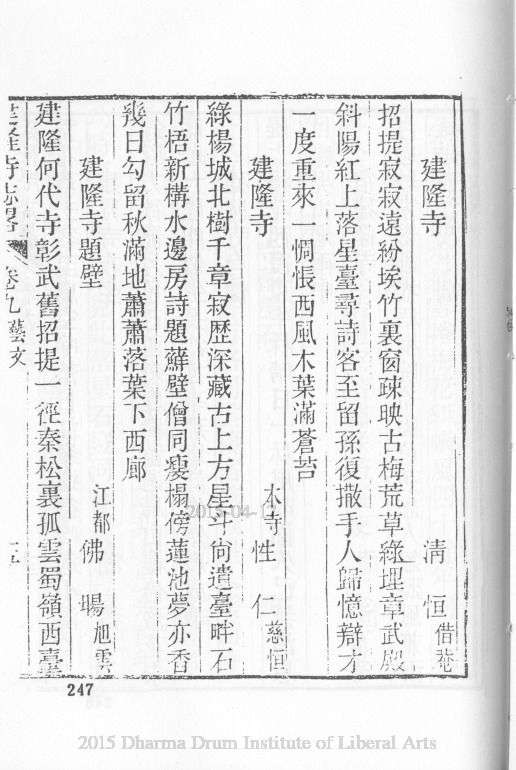 建隆寺 清恒借菴
招提寂寂遠紛埃竹裏窗疎映古梅荒草綠埋章武殿
斜陽紅上落星臺尋詩客至留孫復撒手人歸憶辯才
一度重來一惆悵西風木葉滿蒼苔
建隆寺 本寺性仁慈恒
綠楊城北樹千章寂歷深藏古上方星斗尙遺臺畔石
竹梧新構水邊房詩題蘚壁僧同瘦榻傍蓮池夢亦香
幾日勾留秋滿地蕭蕭落葉下西廊
建隆寺題壁 江都佛暘旭雲
建隆何代寺彰武舊招提一徑秦松裏孤雲蜀嶺西臺
建隆寺志畧 卷九藝文 十五
247
2015-04-17
2015 Dharma Drum Institute of Liberal Arts